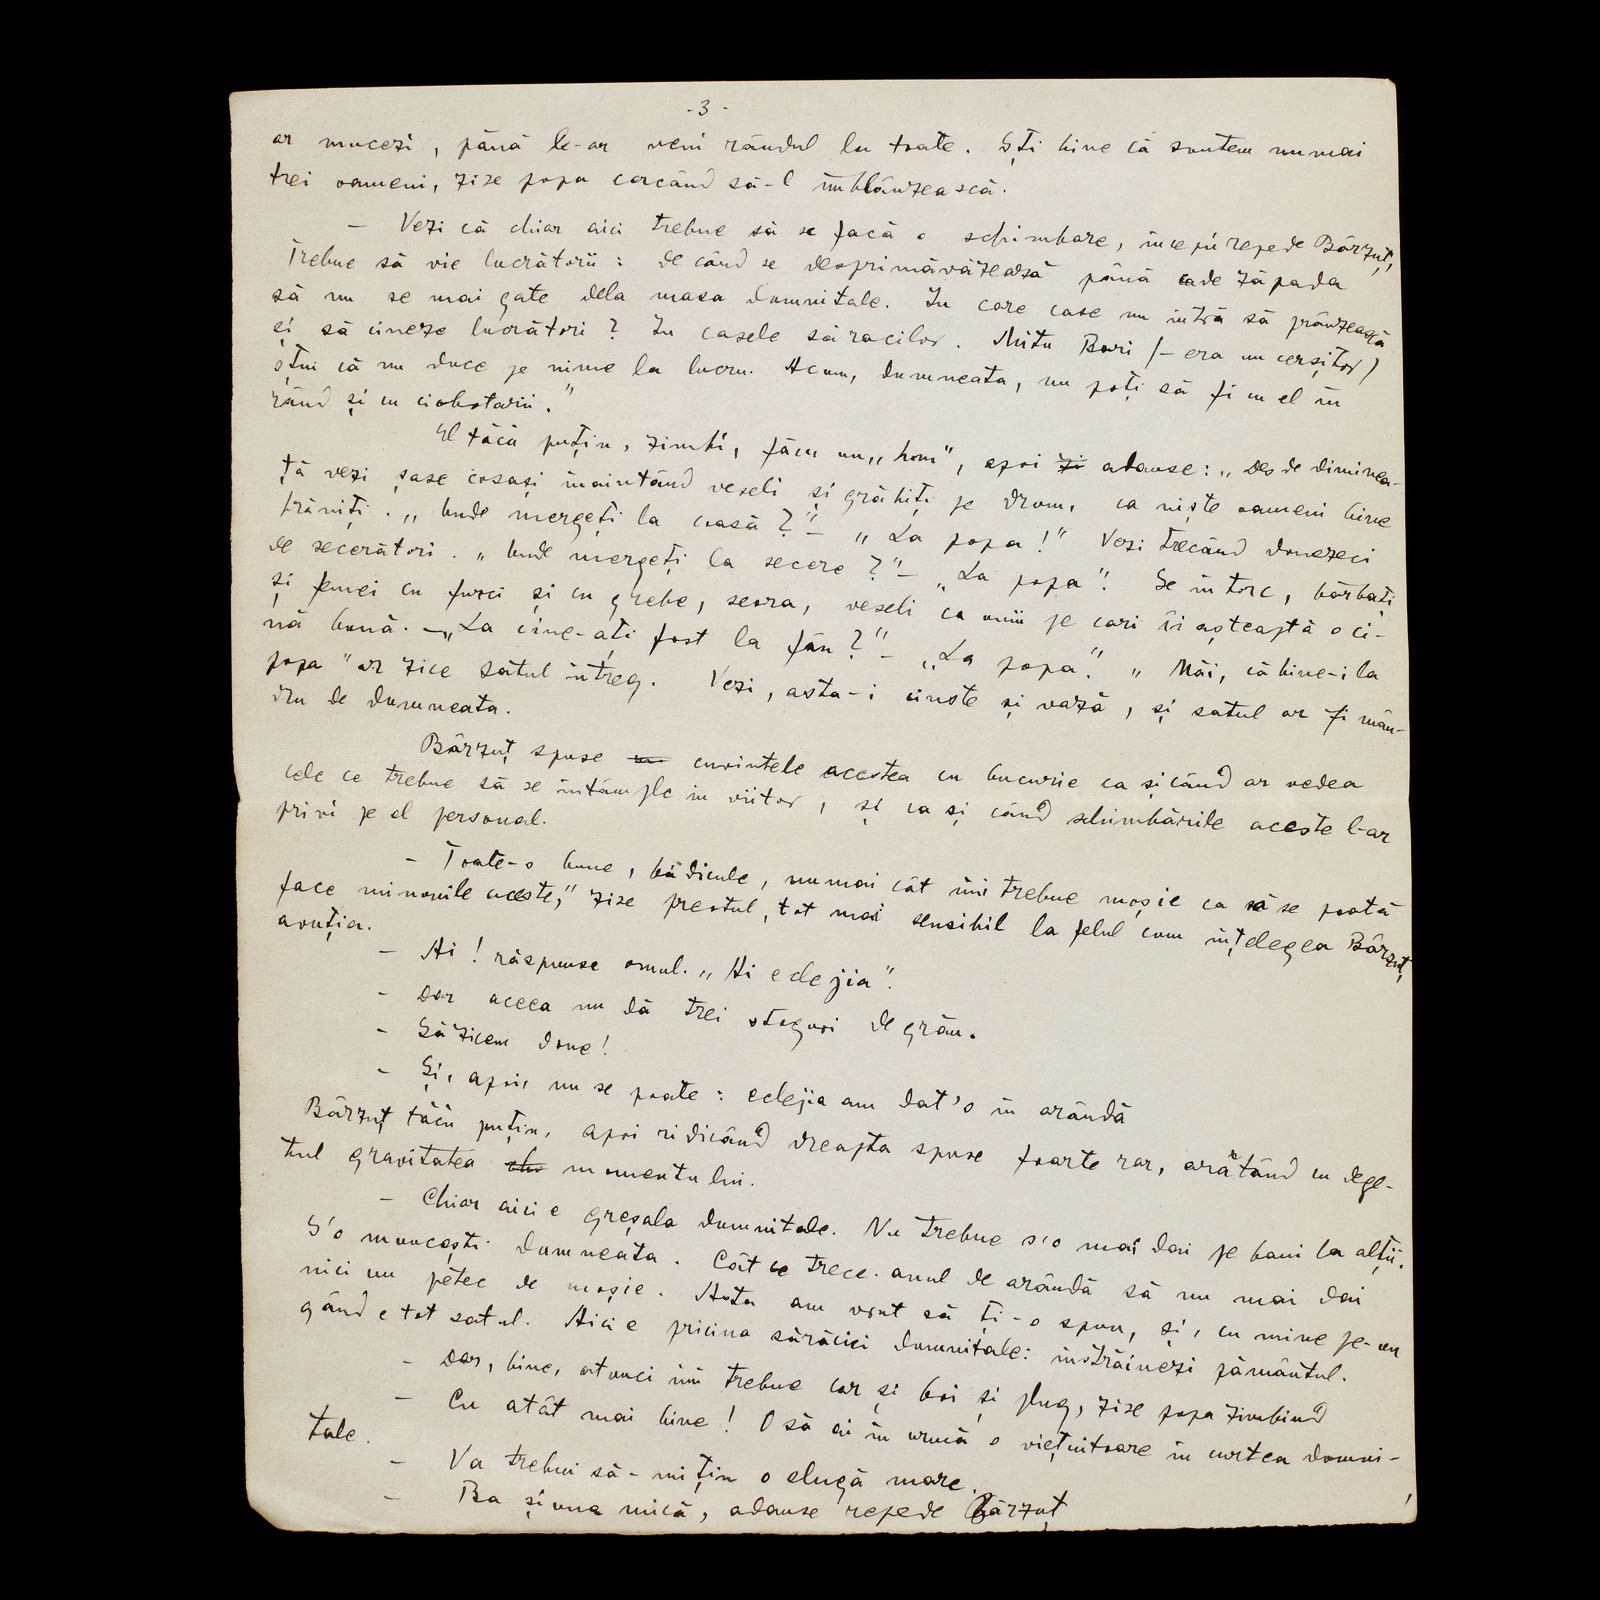 - 3 -
ar mucezi, până le-ar veni rândul la toate. Ști bine că suntem numai
trei oameni, zise popa cercând să-l îmblânzească.
— Vezi că chiar aici trebue să se facă o schimbare, începù repede Bârzuț,
Trebue să vie lucrătorii: de când se desprimăvărează până cade zăpada
să nu se mai gate dela masa dumnitale. În care case nu intră să prânzească
și să cineze lucrători? În casele săracilor. Mitu Bari (- era un cerșitor)
știu că nu duce pe nime la lucru. Acum, dumneata, nu poți să fi cu el în
rând și cu ciobotarii."
El tăcù puțin, zimbi, făcu un „hm", apoi adause: „Des de diminea-
ță vezi șase cosași înaintând veseli și grăbiți pe drum, ca niște oameni bine
hrăniți. „Unde mergeți la coasă?" - „La popa!" Vezi trecând douezeci
de secerători. „Unde mergeți la secere?" - „La popa". Se întorc, bărbați
și femei cu furci și cu greble, seara, veseli ca unii pe cari îi așteaptă o ci-
nă bună. - „La cine-ați fost la fân?" - „La popa". „Măi, că bine-i la
popa" ar zice satul întreg. Vezi, asta-i cinste și vază, și satul ar fi mân-
dru de dumneata.
Bârzuț spuse cuvintele acestea cu bucurie ca și când ar vedea
cele ce trebue să se întâmple în viitor, și ca și când schimbările aceste l-ar
privi pe el personal.
- Toate-s bune, bădicule, numai cât îmi trebue moșie ca să se poată
face minunile aceste," zise preotul, tot mai sensibil la felul cum înțelegea Bârzuț
avuția.
- Ai! răspunse omul. „Ai eclejia".
- Dar aceea nu dă trei stoguri de grâu.
- Să zicem doue!
- Și, apoi, nu se poate: eclejia am dat'o în arândă
Bârzuț tăcù puțin, apoi ridicând dreapta spuse foarte rar, arătând cu dege-
tul gravitatea momentului.
- Chiar aici e greșala dumnitale. Nu trebue s'o mai dai pe bani la alții.
S'o muncești dumneata. Cât ce trece anul de arândă să nu mai dai
nici un petec de moșie. Asta am vrut să ți-o spun, și, cu mine pe-un
gând e tot satul. Aici e pricina sărăciei dumnitale: înstrăinezi pământul.
- Dar, bine, atunci îmi trebue car și boi și plug, zise popa zimbind
- Cu atât mai bine! O să ai în urmă o viețuitoare în curtea dumni-
tale.
- Va trebui să-mi țin o slugă mare.
- Ba și una mică, adause repede Bârzuț,